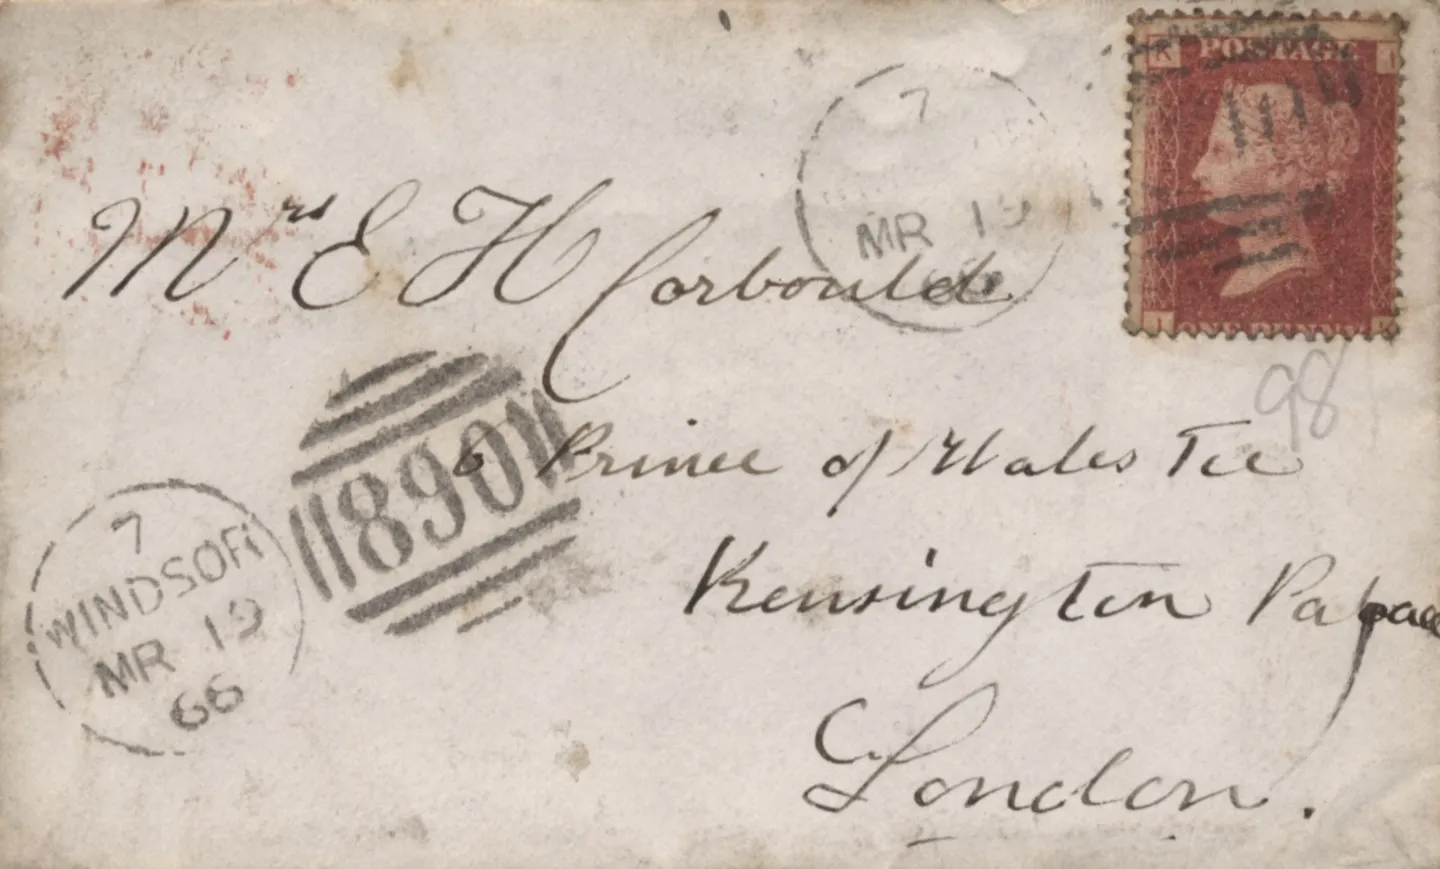 K POSTAGE I
I ONE PENNY K
7
MR 19
66
Mrs E H Corbould
98
6 Prince of Wales Tce
890
Kensington Palace
7
WINDSOR
MR 19
66
London.